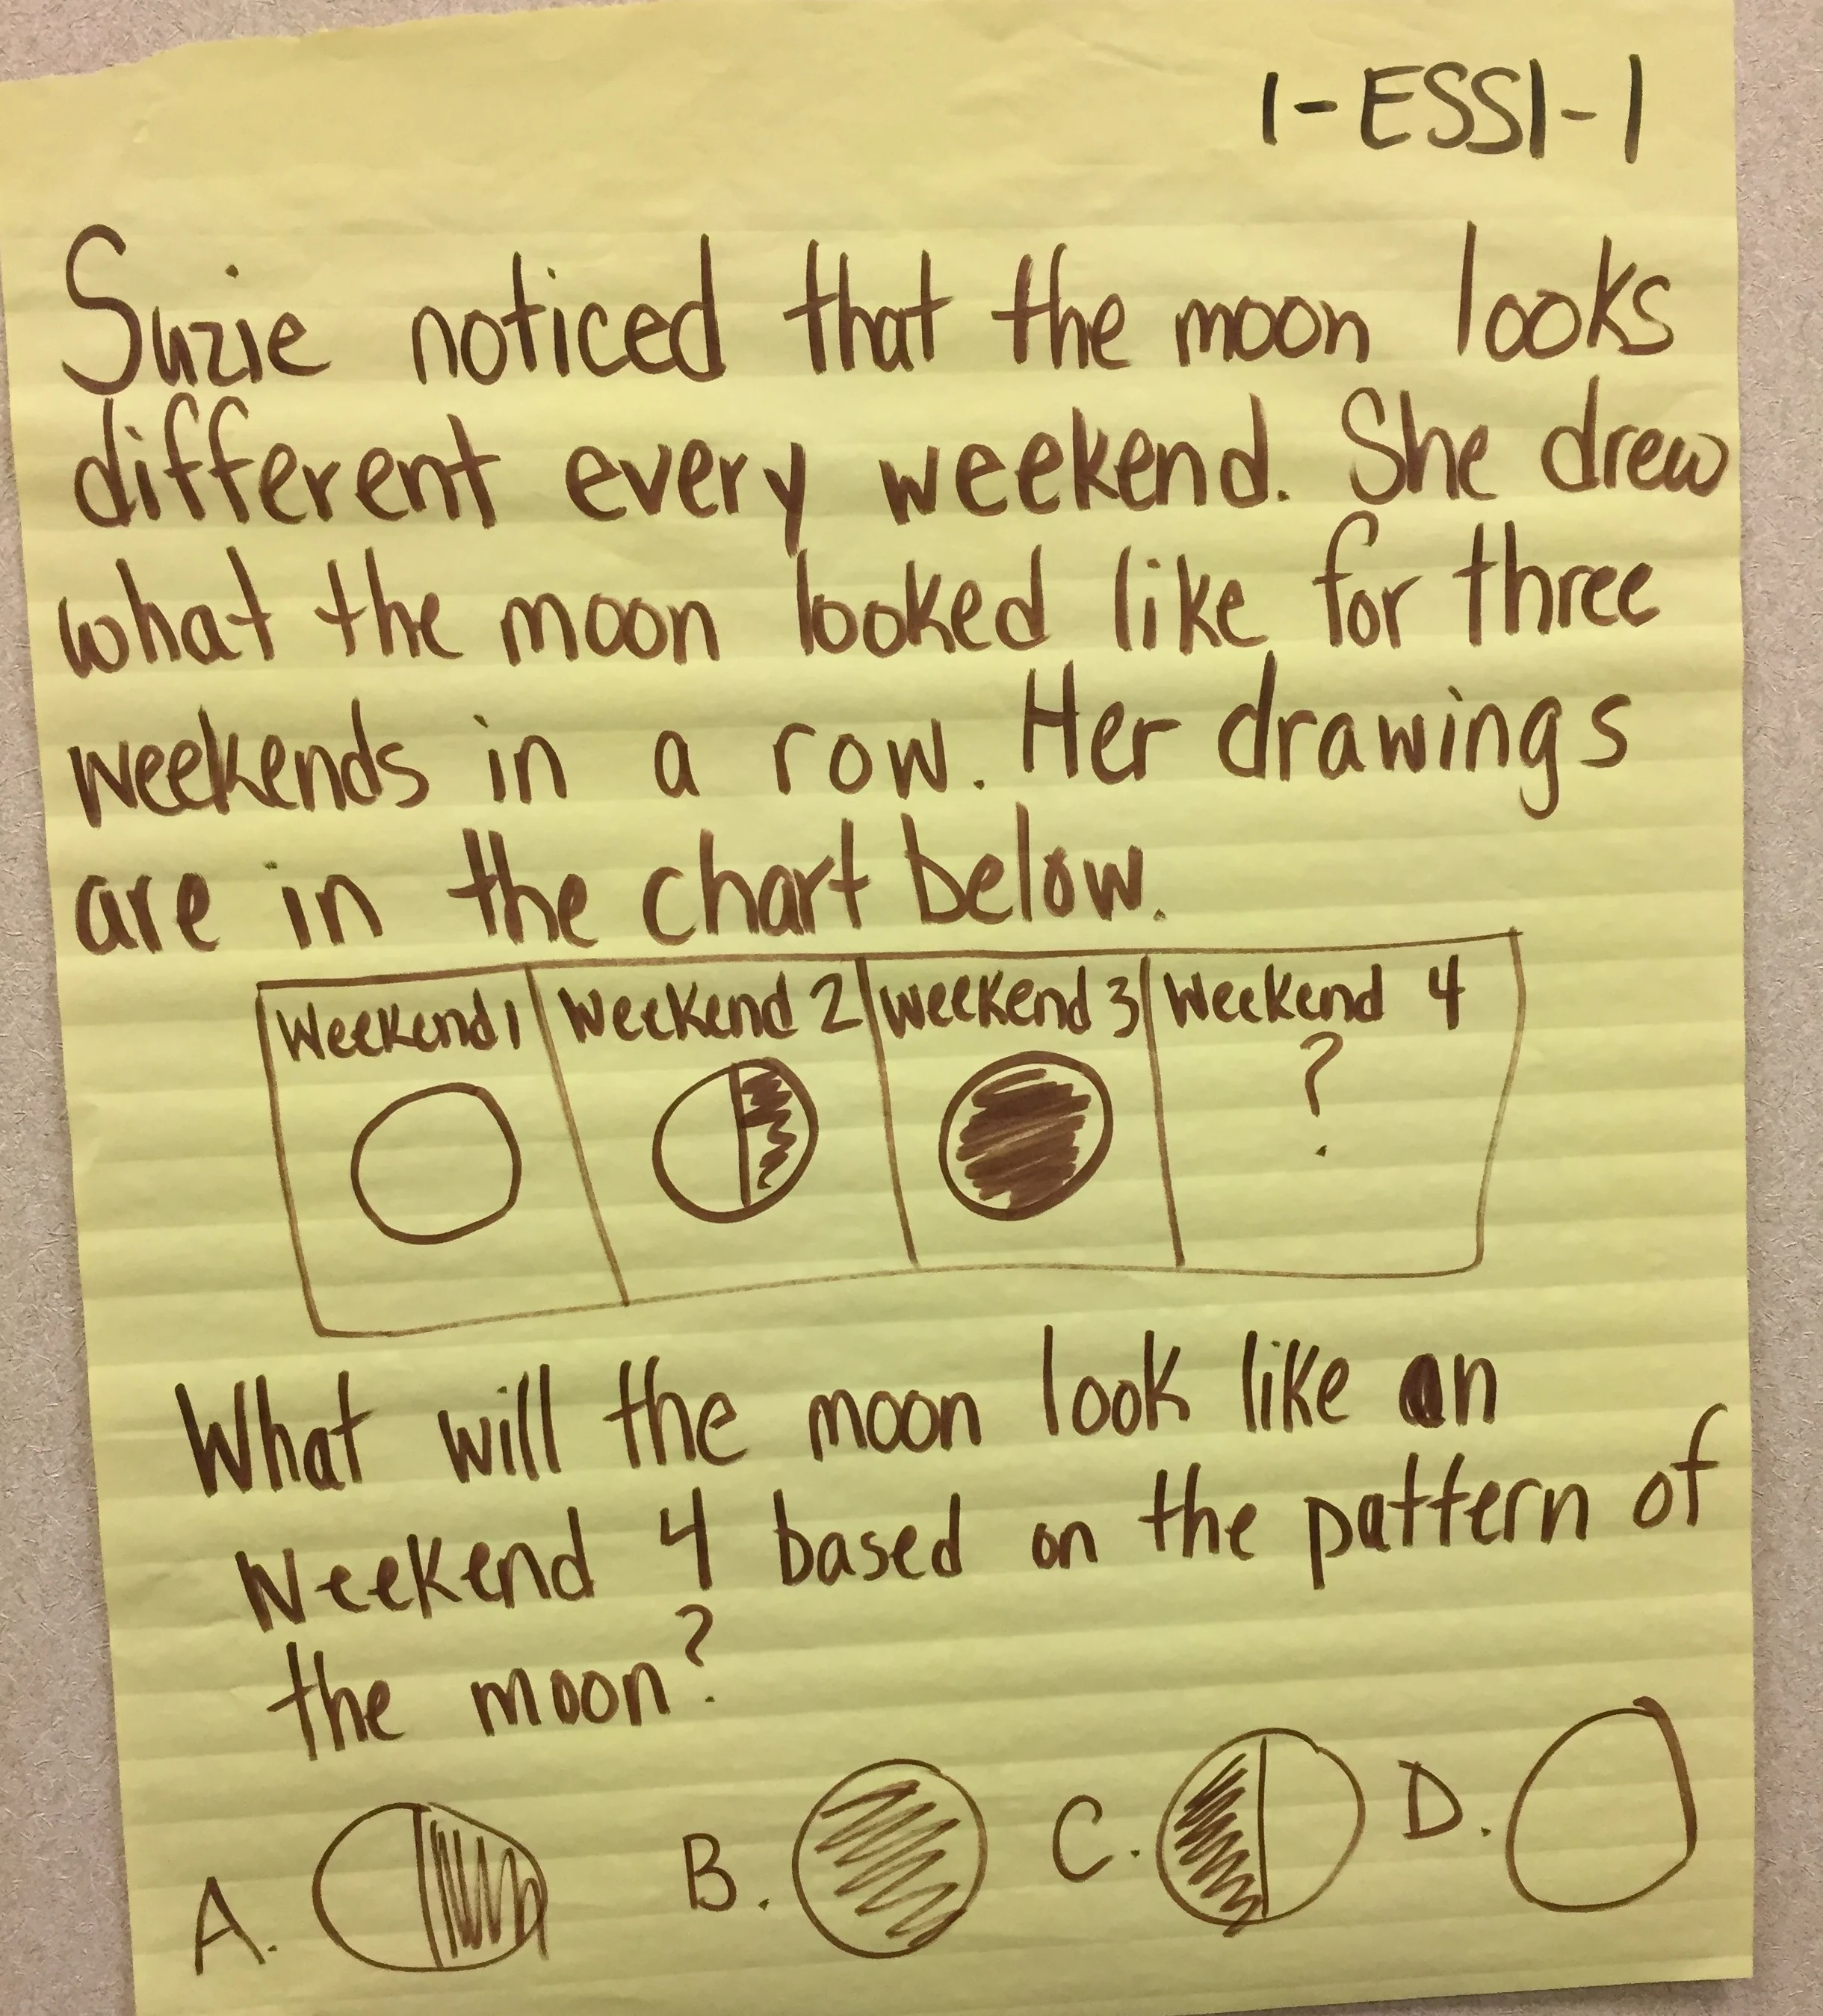 1-ESS1-1
Suzie noticed that the moon looks
different every weekend. She drew
what the moon looked like for three
weekends in a row. Her drawings
are in the chart below.
Weekend 1 Weekend 2 Weekend 3 Weekend 4
?
What will the moon look like on
Weekend 4 based on the pattern of
the moon?
A. B. C. D.